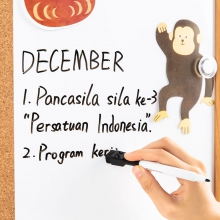 DECEMBER
1. Pancasila sila ke-3
"Persatuan Indonesia".
2. Program